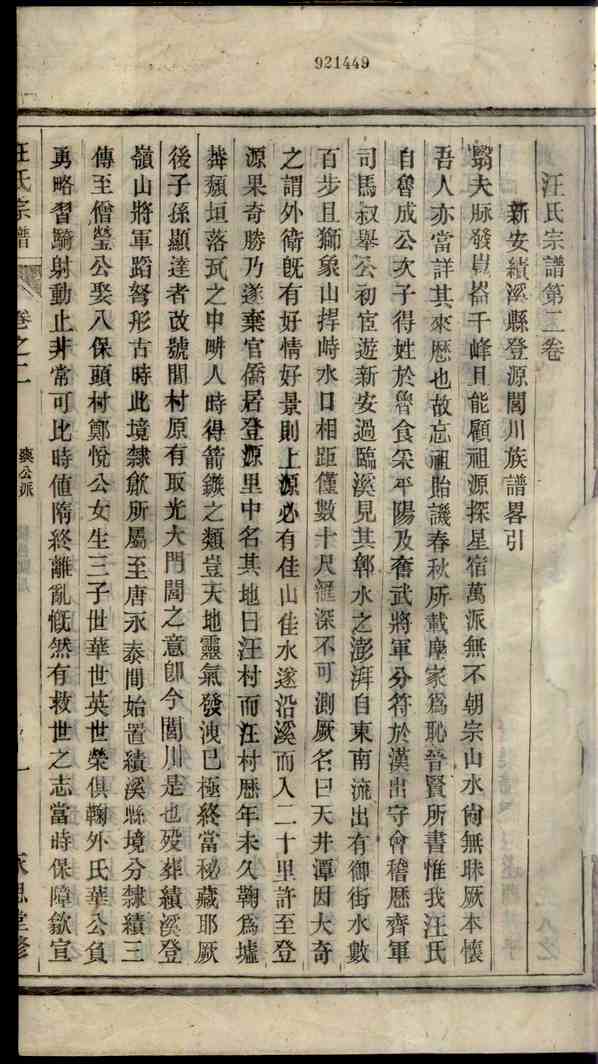 921449
汪氏宗譜第二卷
新安績溪縣登源閭川族譜畧引
竊夫脉發崑崙千峰且能顧祖源探星宿萬派無不朝宗山水尙無昧厥本懷
吾人亦當詳其來歷也故忘祖貽譏春秋所載麾家爲恥晉賢所書惟我汪氏
自魯成公次子得姓於魯食采平陽及奮武將軍分符於漢出守會稽歷齊軍
司馬叔舉公初宦遊新安過臨溪見其鄣水之澎湃自東南流出有御街水數
百步且獅象山捍峙水口相距僅數十尺滙深不可測厥名曰天井潭因大奇
之謂外衛旣有好情好景則上源必有佳山佳水遂沿溪而入二十里許至登
源果奇勝乃遂棄官僑居登源里中名其地曰汪村而汪村歷年未久鞠爲墟
莽頹垣落瓦之中畊人時得箭鏃之類豈天地靈氣發洩已極終當秘藏耶厥
後子孫顯達者改號閭村原有取光大門閭之意卽今閭川是也歿葬績溪登
嶺山將軍蹈弩形古時此境隸歙所屬至唐永泰間始置績溪縣境分隸績三
傳至僧瑩公娶八保頭村鄭悅公女生三子世華世英世榮俱鞠外氏華公負
勇略習騎射動止非常可比時値隋終離亂慨然有救世之志當時保障歙宣
汪氏宗譜
卷之二
爽公派
一
永思堂修